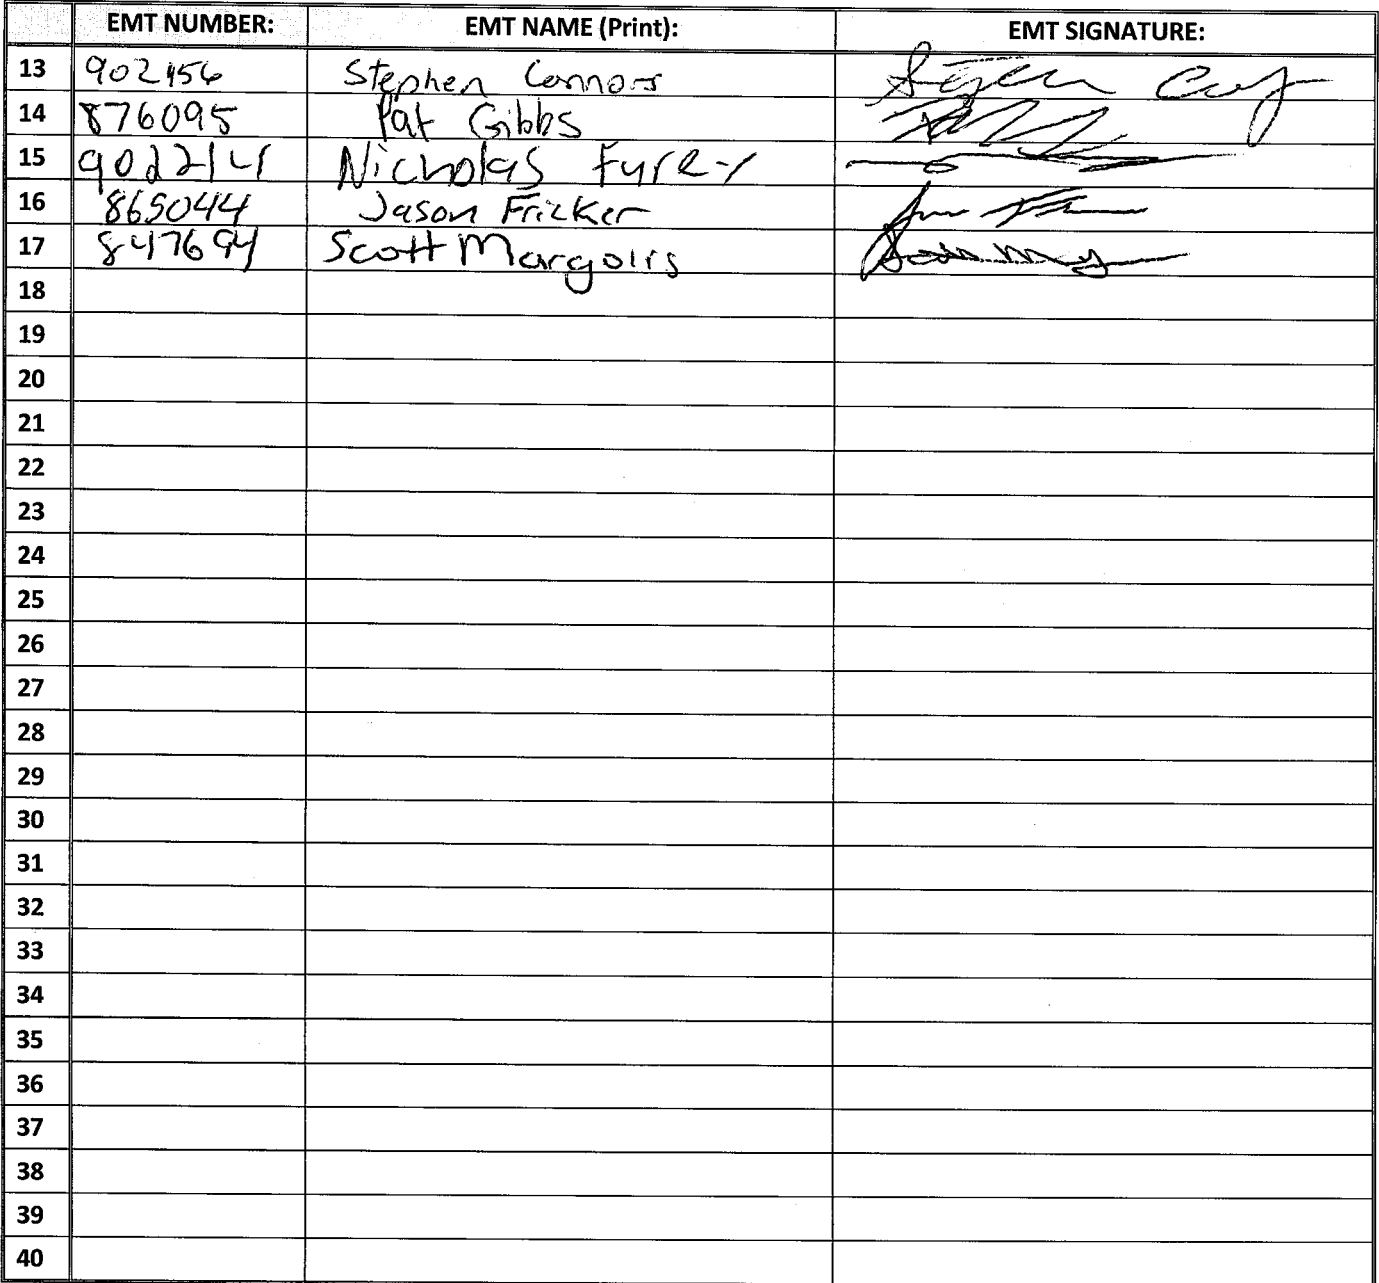 EMT NUMBER: EMT NAME (Print): EMT SIGNATURE:
13 902156 Stephen Connors
14 876095 Pat Gibbs
15 902214 Nicholas Furey
16 865044 Jason Fricker
17 847694 Scott Margolis
18
19
20
21
22
23
24
25
26
27
28
29
30
31
32
33
34
35
36
37
38
39
40